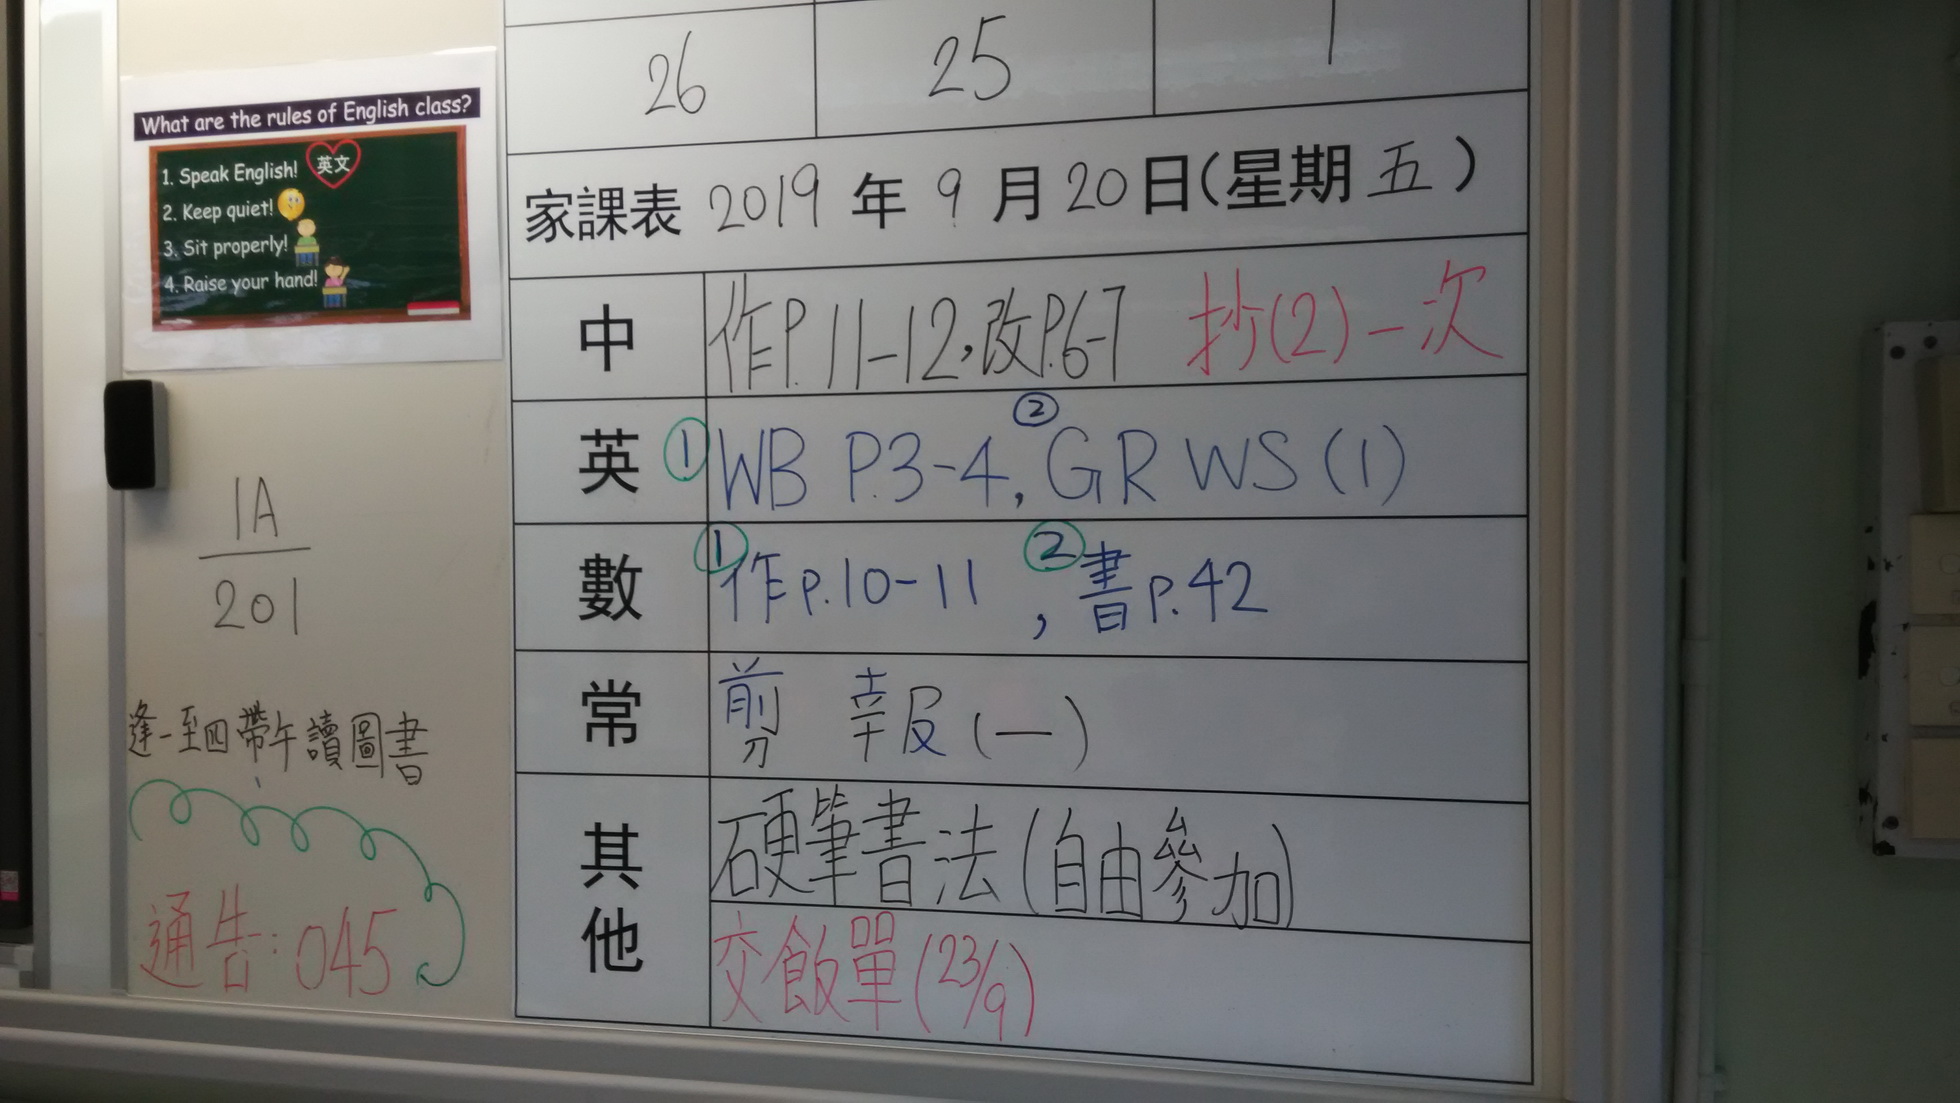 26 25 1
What are the rules of English class?
1. Speak English! 英文
2. Keep quiet!
3. Sit properly!
4. Raise your hand!
家課表 2019 年 9 月 20 日(星期五)
中 作P.11-12,改P.6-7 抄(2)一次
英 ①WB P.3-4, ②GR WS (1)
數 ①作p.10-11 , ②書p.42
常 剪 報(一)
其他 硬筆書法(自由參加)
交飯單(23/9)
1A
201
逢一至四帶午讀圖書
通告:045